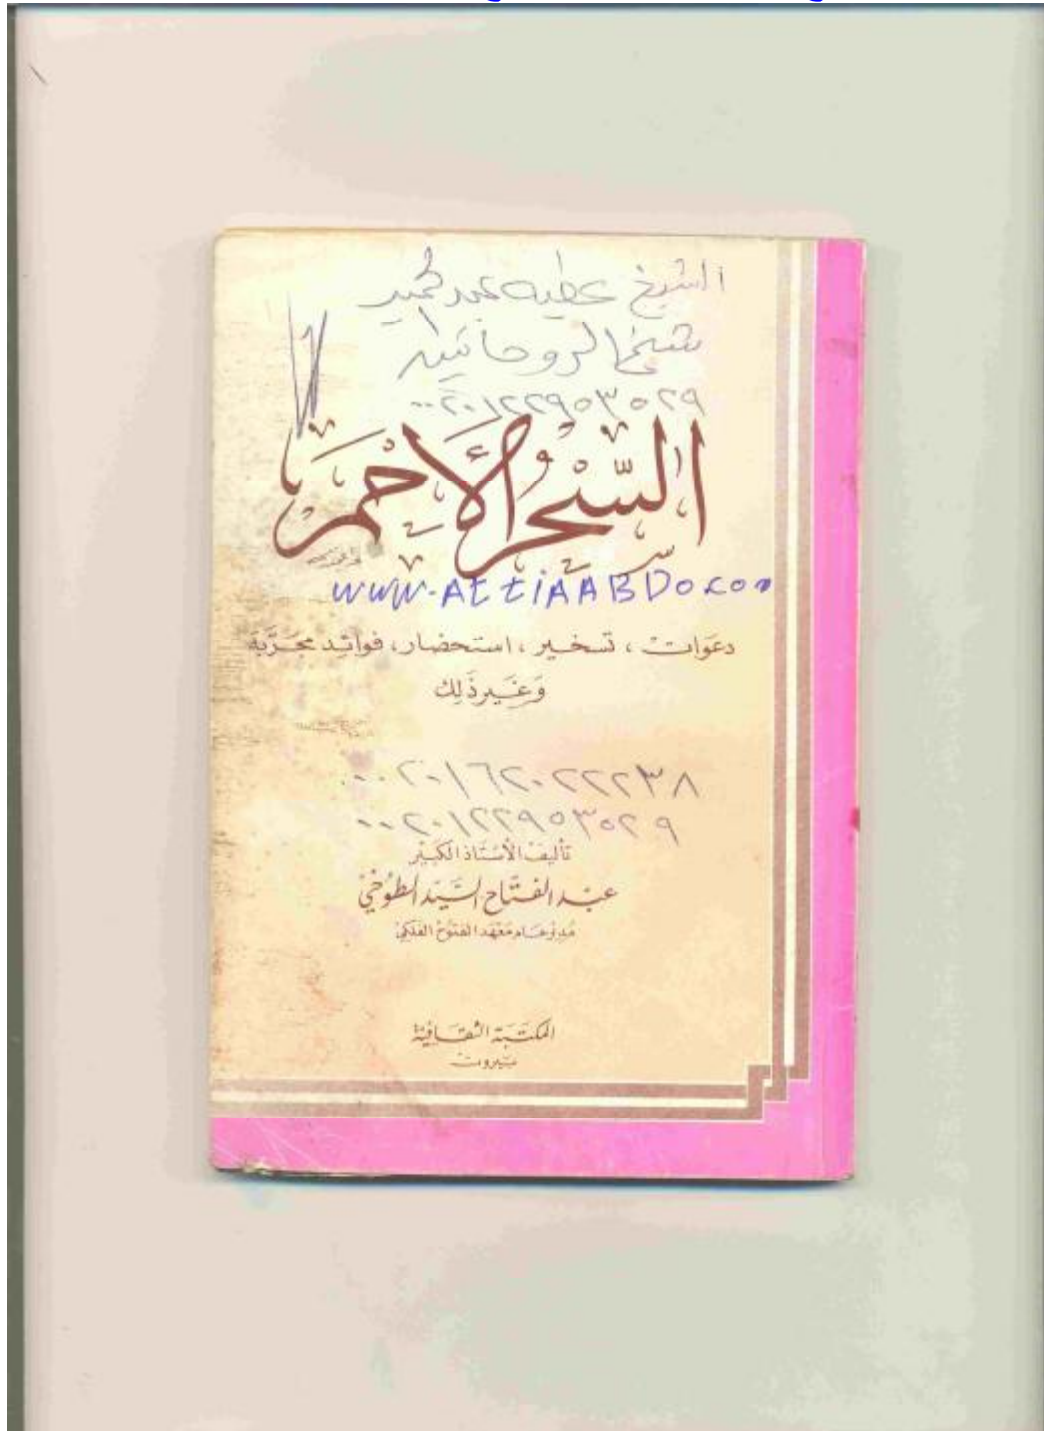 الشيخ عطيه عبد الحميد
شيخ الروحانيين
٠٠٢٠١٢٢٩٥٣٥٢٩
السِّحْرُ الأَحْمَر
www.AttiAABDo.com
دعَوات ، تسخير ، استحضار ، فوائد مجَرَّبة
وَغَير ذَلِك
٠٠٢٠١٦٢٠٢٢٢٣٨
٠٠٢٠١٢٢٩٥٣٥٢٩
تأليف الأستاذ الكبير
عبد الفتاح السيد الطوخي
مدير عام معهد الفتوح الفلكي
المكتبة الثقافية
بيروت